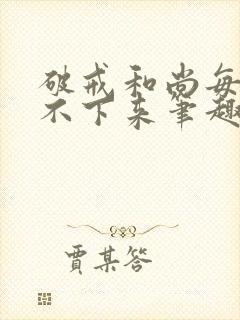 破戒和尚每
不下来笔趣
贾某答